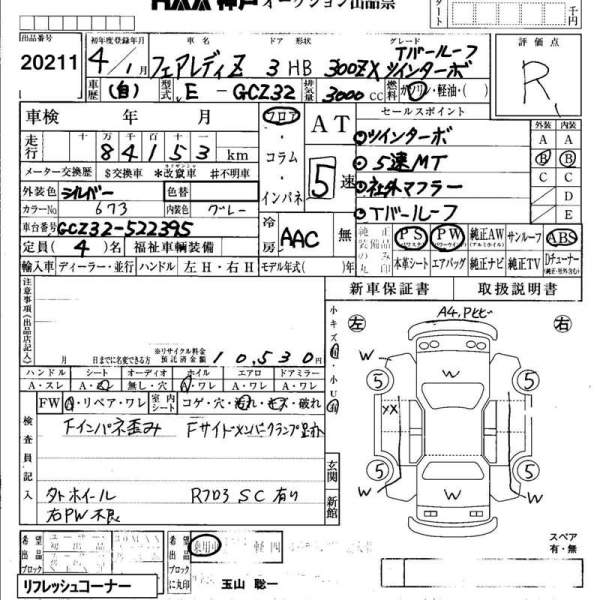 神戸 オークション出品票
スタート 千円
出品番号 初年度登録年月 車名 ドア 形状 グレード 評価点
20211 4/1月 フェアレディZ 3 HB 300ZX Tバールーフ ツインターボ R
車歴 (自) 型式 E-GCZ32 排気量 3000cc 燃料 ガソリン・軽油・( )
車検 年 月 フロア AT セールスポイント
走行 十万千百十一 84153 km ・コラム・インパネ 5速
メーター交換歴 $交換車 *改竄車 #不明車
外装色 シルバー 色替
カラーNo 673 内装色 グレー
車台番号 GCZ32-522395 冷房 AAC 無
定員(4)名 福祉車輌装備
輸入車 ディーラー・並行 ハンドル 左H・右H モデル年式( )年
ツインターボ
5速MT
社外マフラー
Tバールーフ
外装 内装
A A
B B
C C
D D
E E
純正装備品の丸み印 PS パワステ PW パワーウインド 純正AW (アルミホイル) サンルーフ ABS
本革シート エアバッグ 純正ナビ 純正TV Dチューナー (純正・社外含む)
新車保証書 取扱説明書
注意事項(出品店記入)
月 日までに名変できる方 ※リサイクル料金預託済金額 10,530円
小キズ 小U
左 A4,Pヒビ 右
W W
5 5
XX W
5 5
W W
ハンドル シート オーディオ ホイル エアロ ドアミラー
A・スレ A・ 無し・穴 A・ワレ A・ワレ A・ワレ
検査員記入 FW A・リペア・ワレ 室内シート コゲ・穴・汚れ・キズ・破れ
Fインパネ歪み Fサイドメンバークランプ跡
タトホイール R703 SC有り
右PW不良
玄関 新館
スペア 有・無
希望出品ブロック 希望出品ブロックに丸印 乗用車 軽四
リフレッシュコーナー 玉山 聡一